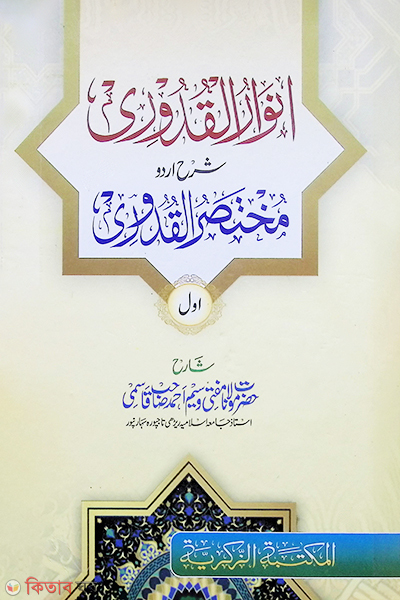 انوار القدوری
شرح اردو
مختصر القدوری
اول
شارح
حضرت مولانا مفتی وسیم احمد صاحب قاسمی
استاذ جامعہ اسلامیہ ریڑھی تاجپورہ سہارنپور
المكتبة الزكرية
কিতাব ঘর